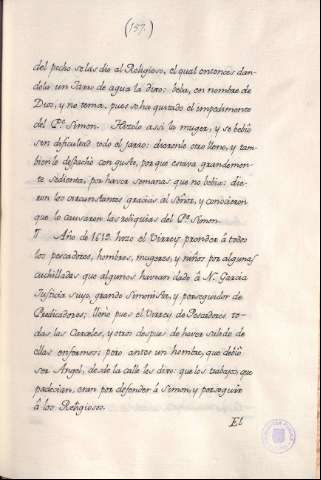 (157.)
del pecho se las dio al Religioso, el qual entonces dan-
dola un Jarro de agua la dixo: beba, en nombre de
Dios, y no tema, pues se ha quitado el impedimento
del Pe. Simon. Hizolo assi la muger, y se bebiò
sin dificultad todo el jarro: dieronle otro lleno, y tam-
bien le despachò con gusto, porque estava grandemen-
te sedienta, por haver semanas que no bebia: die-
ron los circunstantes gracias al Señor, y conocieron
que lo causaron las reliquias del Pe. Simon.
¶ Año de 1619. hizo el Virrey prender â todos
los pescadores, hombres, mugeres, y niños por algunas
cuchilladas que algunos havian dado â N. Garcia
Justicia suya grande Simonista, y perseguidor de
Predicadores; llenò pues el Virrey de Pescadores to-
das las Carceles, y otros despues de haver salido de
ellas enfermos; pero antes un hombre, que debiò
ser Angel, desde la calle les dixo: que los trabajos, que
padecian, eran por defender â Simon, y perseguir
â los Religiosos.
El